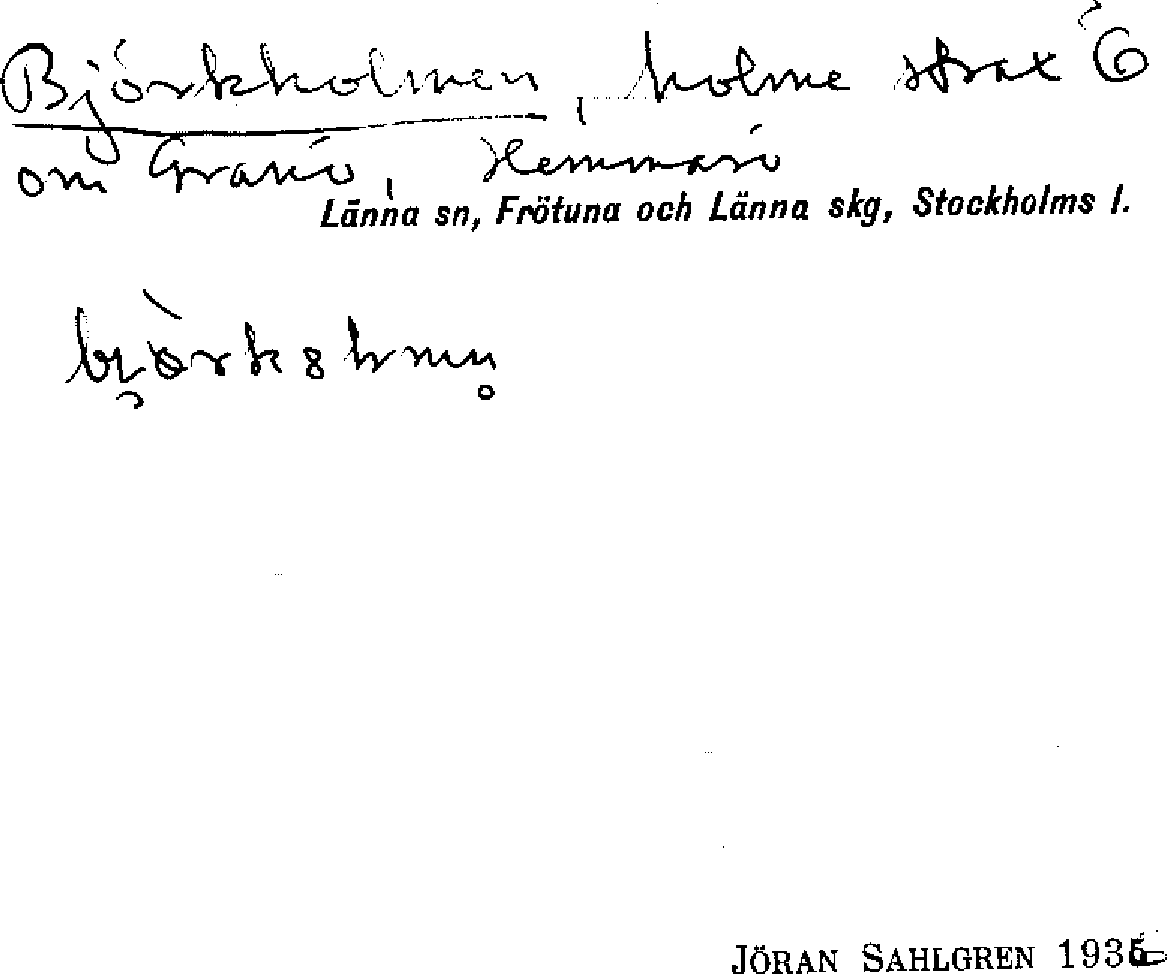 Björkholmen, holme strax Ö
om Granö, Hemmarö
Länna sn, Frötuna och Länna skg, Stockholms l.
JÖRAN SAHLGREN